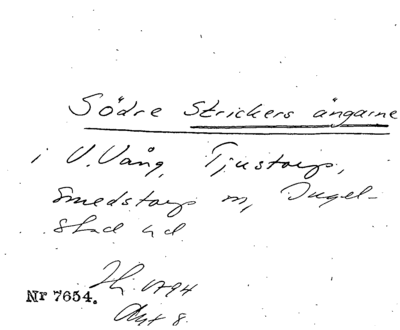 Södre Strickers ängarne
i V. Vång, Tjustorp,
Smedstorp m, Ingel-
stad hd
Nr 7654.